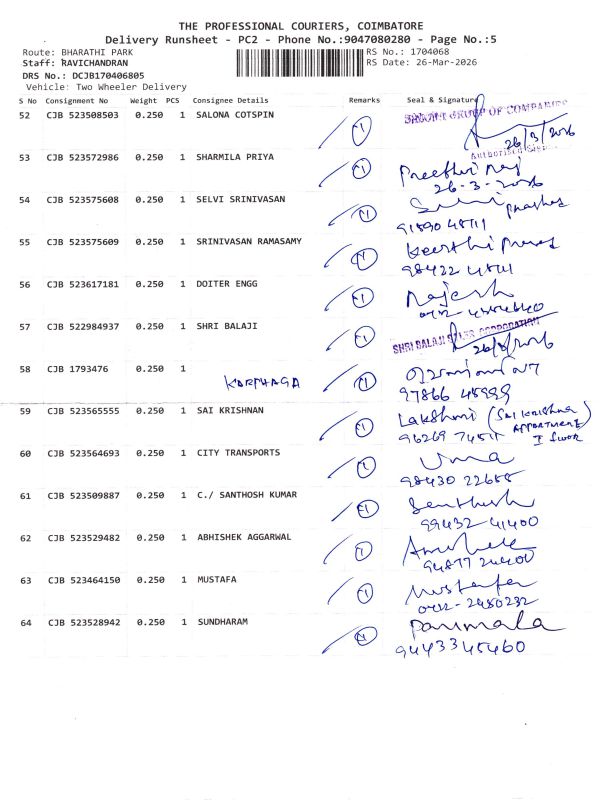 THE PROFESSIONAL COURIERS, COIMBATORE
Delivery Runsheet - PC2 - Phone No.:9047080280 - Page No.:5
Route: BHARATHI PARK
RS No.: 1704068
Staff: RAVICHANDRAN
RS Date: 26-Mar-2026
DRS No.: DCJB170406805
Vehicle: Two Wheeler Delivery
S No Consignment No Weight PCS Consignee Details Remarks Seal & Signature
52 CJB 523508503 0.250 1 SALONA COTSPIN 1 GROUP OF COMPANIES
26/3/2026
53 CJB 523572986 0.250 1 SHARMILA PRIYA 1 Preethi raj
26-3-2026
54 CJB 523575608 0.250 1 SELVI SRINIVASAN 1
55 CJB 523575609 0.250 1 SRINIVASAN RAMASAMY 1 Keerthi
56 CJB 523617181 0.250 1 DOITER ENGG 1 Rajesh
57 CJB 522984937 0.250 1 SHRI BALAJI 1 SHRI BALAJI CORPORATION
58 CJB 1793476 0.250 1 KARPHAGA 1
97866 45999
59 CJB 523565555 0.250 1 SAI KRISHNAN 1 Lakshmi (Sai Krishna
APPARTMENT
I floor
60 CJB 523564693 0.250 1 CITY TRANSPORTS 1 Uma
98430 22688
61 CJB 523509887 0.250 1 C./ SANTHOSH KUMAR 1 Senthish
99432-41400
62 CJB 523529482 0.250 1 ABHISHEK AGGARWAL 1
94877 24400
63 CJB 523464150 0.250 1 MUSTAFA 1 Mustafa
0422-2450232
64 CJB 523528942 0.250 1 SUNDHARAM 1 Parimala
9443345460